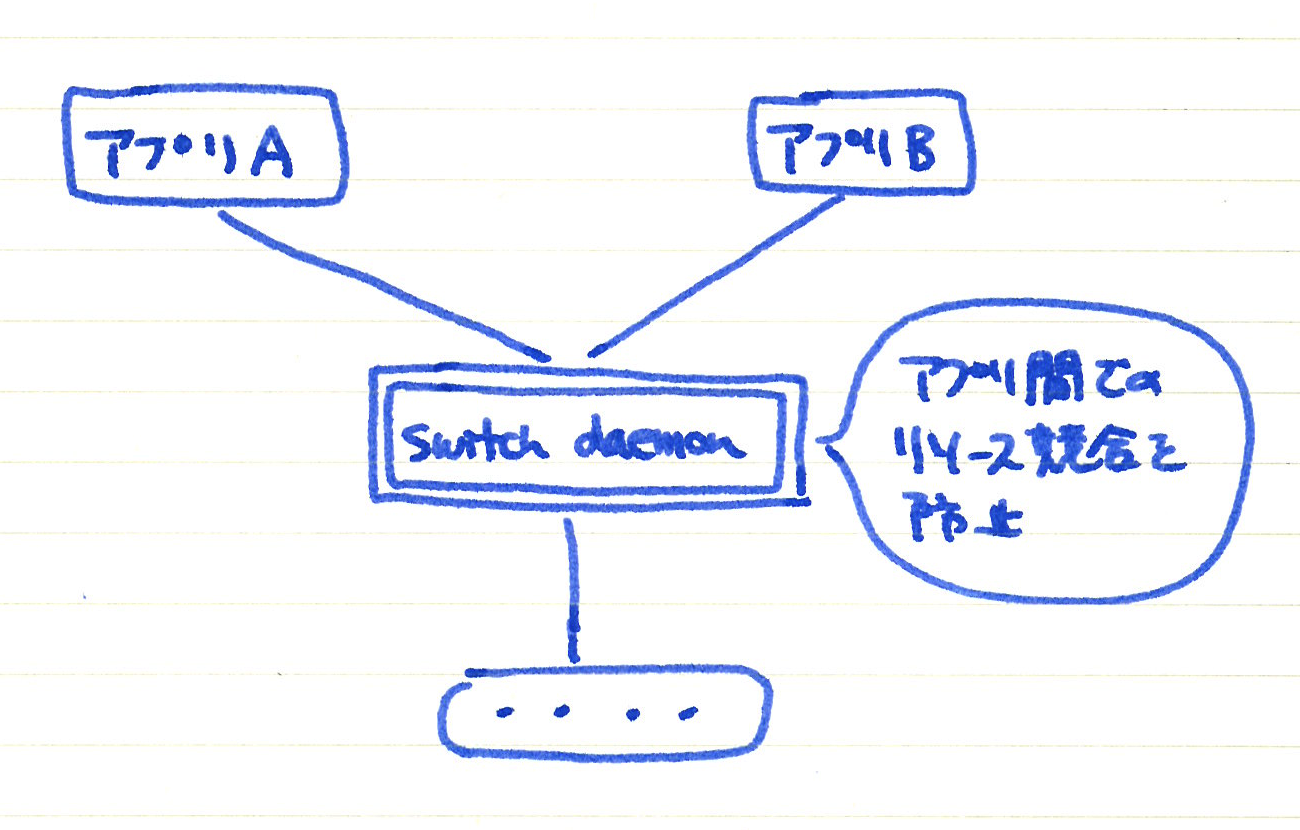 アプリA
アプリB
switch daemon
アプリ間での
リソース競合を
防止
・・・・